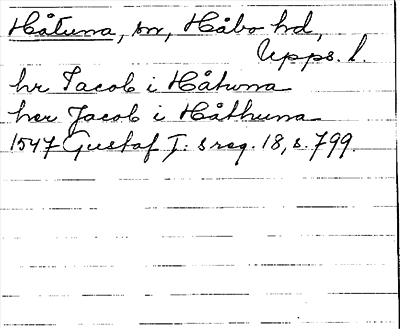 Håtuna, sn, Håbo hd,
Upps. l.
hr Jacob i Håtwna
her Jacob i Håthuna
1547 Gustaf I: s reg. 18, s. 799.